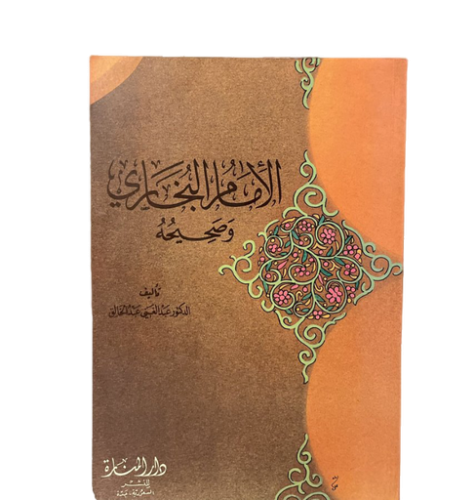 الإمام البُخَاري
وَصَحِيحُهُ
تأليف
الدكتور عبدالغني عبدالخالق
دار المنارة
للنشر
السعودية - جدة